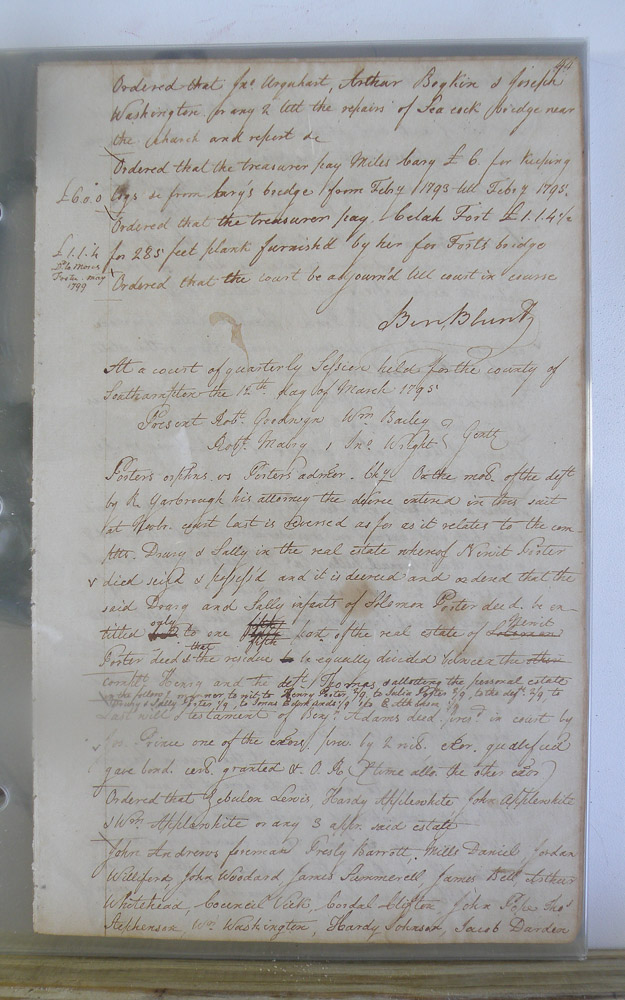 Ordered that Jno Urquhart, Arthur Boykin & Joseph
Washington or any 2 lett the repairs of Seacock bridge near
the church and report &c
Ordered that the treasurer pay Miles Cary £ 6. for keeping
£6.0.0
&c from Cary's bridge from Feby 1793 till Feby 1795.
Ordered that the treasurer pay Celah Fort £ 1.1.4½
£1.1.4
for 285 feet plank furnish'd by her for Forts bridge
Ordered that the court be adjourn'd till court in course
1799
Ben. Blunt
At a court of quarterly Session held for the county of
Southampton the 12th day of March 1795
Present Robt. Goodwyn Wm Bailey
Robt. Mabry, Jno. Wright Gentl
Porters orphns. vs Porters admor. Chy. On the mo. of the deft
by R. Yarbrough his attorney the decree entered in this suit
at Novbr. court last is reversed as far as it relates to the com-
plts. Drury & Sally in the real estate whereof Newit Porter
died seis'd & possess'd and it is decreed and ordered that the
said Drury and Sally infants of Solomon Porter decd. be en-
titled only to one fifth part of the real estate of Newit
Porter decd & that the residue to be equally divided between the
complt Henry and the deft. Thomas & allotting the personal estate
in the follows. manner to wit to Henry Porter, 2/9, to Julia Porter 2/9, to the deft 2/9, to
Drury & Sally Porter, 1/9, to Jonas Edwards 1/9 & to
Last will & testament of Benj. Adams decd. pres. in court by
Prince one of the exors, prov. by 2 wits. exor. qualified
gave bond. cert. granted & O. R. (time allo. the other exor)
Ordered that Zebulon Lewis, Hardy Applewhite, John Applewhite
& Wm. Applewhite or any 3 appr. said estate
John Andrews foreman Presly Barrott, Mills Daniel, Jordan
Williford, John Woodard James Summerell James Bell, Arthur
Whitehead, Council Vick, Cordal Clifton John Pope Thos
Stephenson, Wm. Washington, Hardy Johnson, Jacob Darden